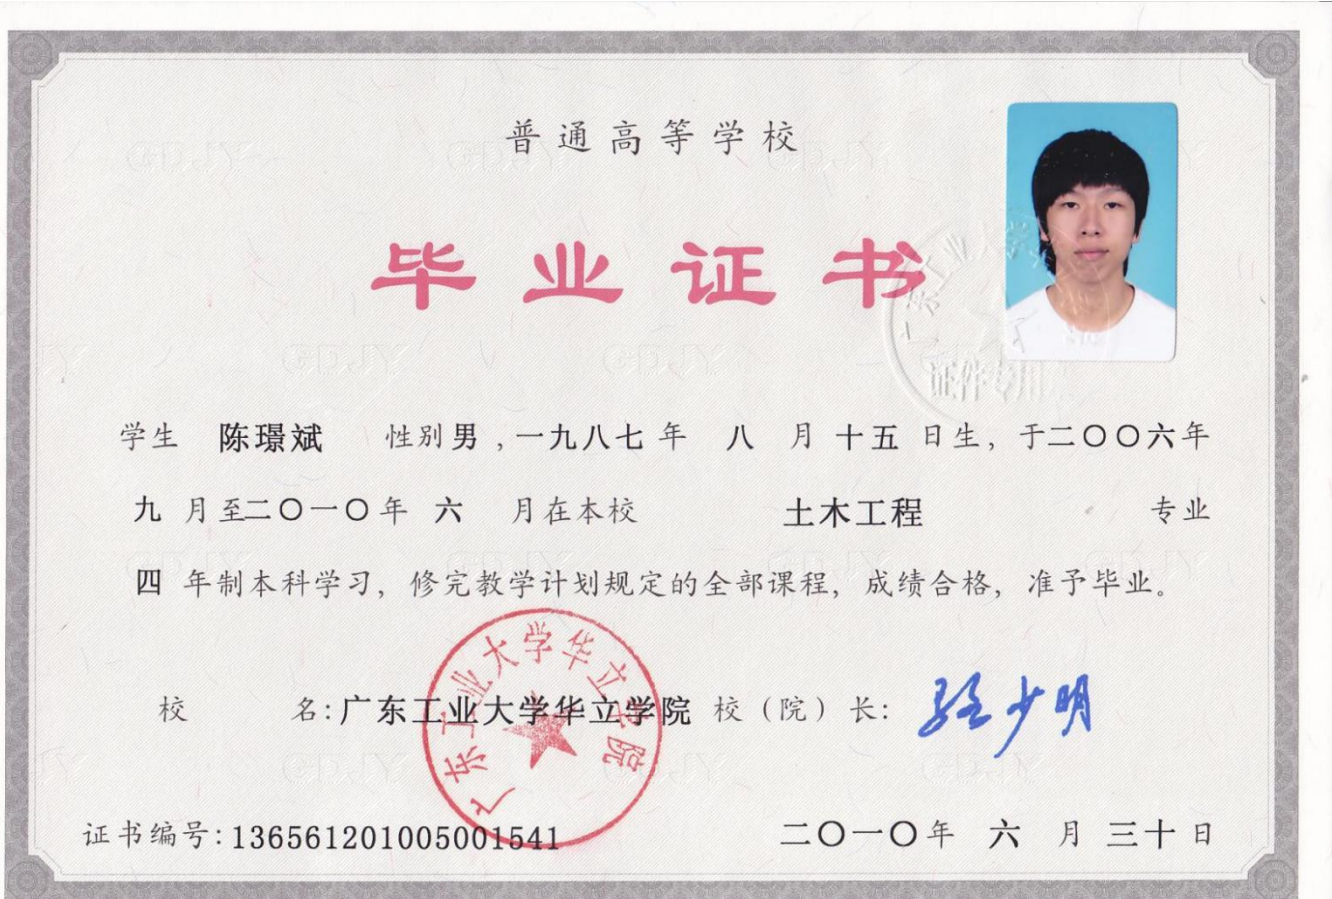 普通高等学校
毕业证书
学生 陈璟斌 性别 男 ,一九八七 年 八 月 十五 日生, 于二〇〇六年
九 月至二〇一〇年 六 月在本校 土木工程 专业
四 年制本科学习, 修完教学计划规定的全部课程, 成绩合格, 准予毕业。
校 名:广东工业大学华立学院 校（院）长: 骆少明
广东工业大学华立学院
证件专用
证书编号:136561201005001541
二〇一〇年 六 月 三十 日
GDJY